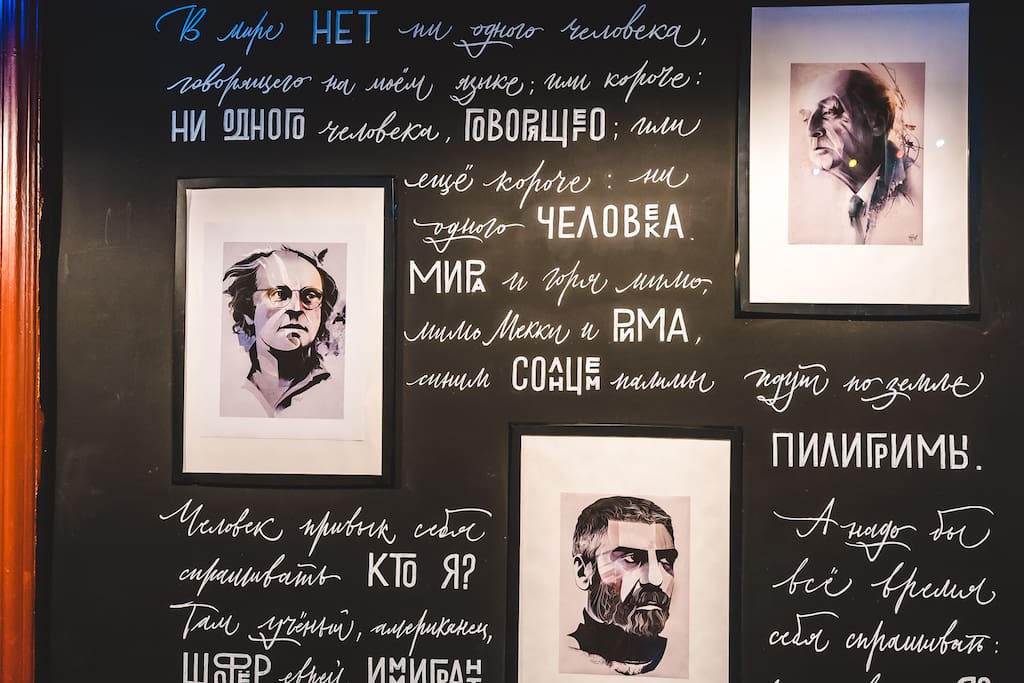 В мире НЕТ ни одного человека,
говорящего на моём языке; или короче:
НИ ОДНОГО человека, ГОВОРЯЩЕГО; или
ещё короче: ни
одного ЧЕЛОВЕКА.
МИРА и горя мимо,
мимо Мекки и РИМА,
синим СОЛНЦЕМ палимы
идут по земле
ПИЛИГРИМЫ.
Человек привык себя
спрашивать КТО Я?
Там учёный, американец,
ШОФЕР еврей ИММИГРАНТ
А надо бы
всё время
себя спрашивать: